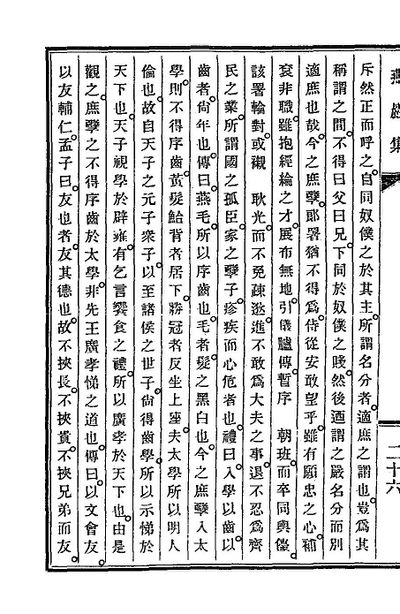 斥然正而呼之自同奴僕之於其主所謂名分者適庶之謂也豈爲其
稱謂之間不得曰父曰兄下同於奴僕之賤然後迺謂之嚴名分而別
適庶也哉今之庶孼郞署猶不得爲侍從安敢望乎雖有願忠之心補
袞非職雖抱經綸之才展布無地引儀臚傳暫序 朝班而卒同輿儓
該署輪對或襯 耿光而不免疎逖進不敢爲大夫之事退不忍爲齊
民之業所謂國之孤臣家之孼子疹疾而心危者也禮曰入學以齒以
齒者尙年也傳曰燕毛所以序齒也毛者髮之黑白也今之庶孼入太
學則不得序齒黃髮鮐背者居下勝冠者反坐上座夫太學所以明人
倫也故自天子之元子衆子以至諸侯之世子尙得齒學所以示悌於
天下也天子視學於辟雍有乞言饗食之禮所以廣孝於天下也由是
觀之庶孼之不得序齒於太學非先王廣孝悌之道也傳曰以文會友
以友輔仁孟子曰友也者友其德也故不挾長不挾貴不挾兄弟而友
集
二十六